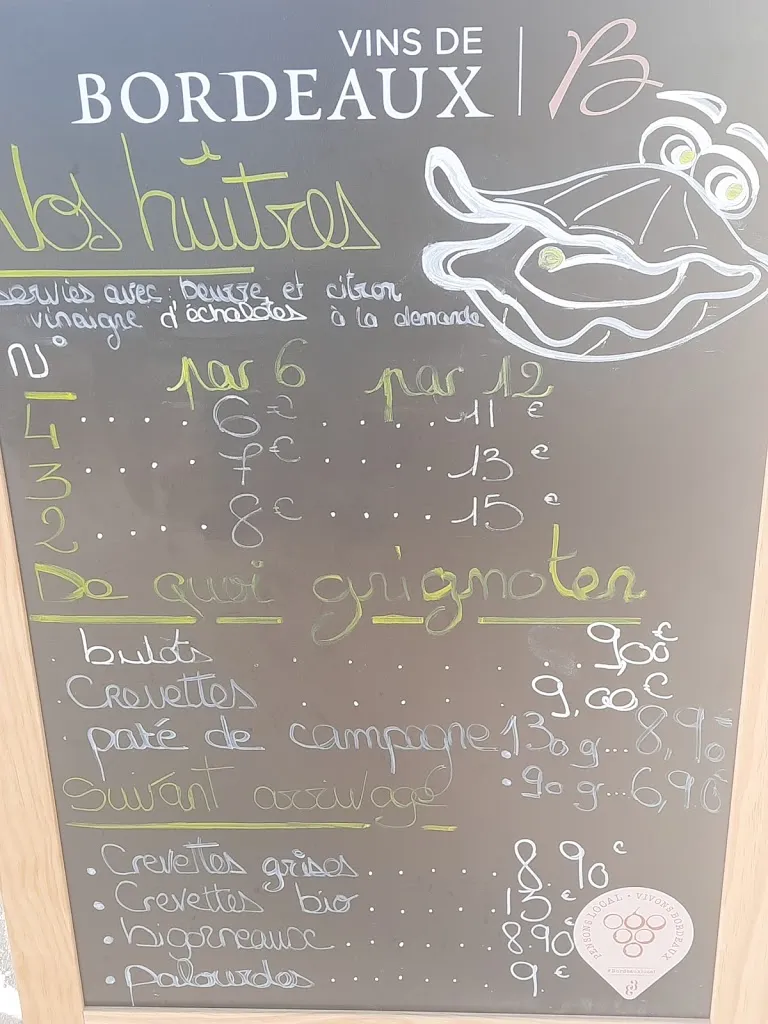 VINS DE
BORDEAUX
B
Nos huîtres
servies avec beurre et citron
vinaigre d'échalotes à la demande
N° par 6 par 12
4 ..... 6€ ..... 11 €
3 ..... 7€ ..... 13 €
2 ..... 8€ ..... 15 €
De quoi grignoter
. bulots ..... 9,00€
. Crevettes ..... 9,00€
. paté de campagne . 130g ... 8,90€
. 90g ... 6,90€
Suivant arrivage
. Crevettes grises ..... 8.90€
. Crevettes bio ..... 13€
. bigorneaux ..... 8.90€
. palourdes ..... 9€
PENSONS LOCAL • VIVONS BORDEAUX